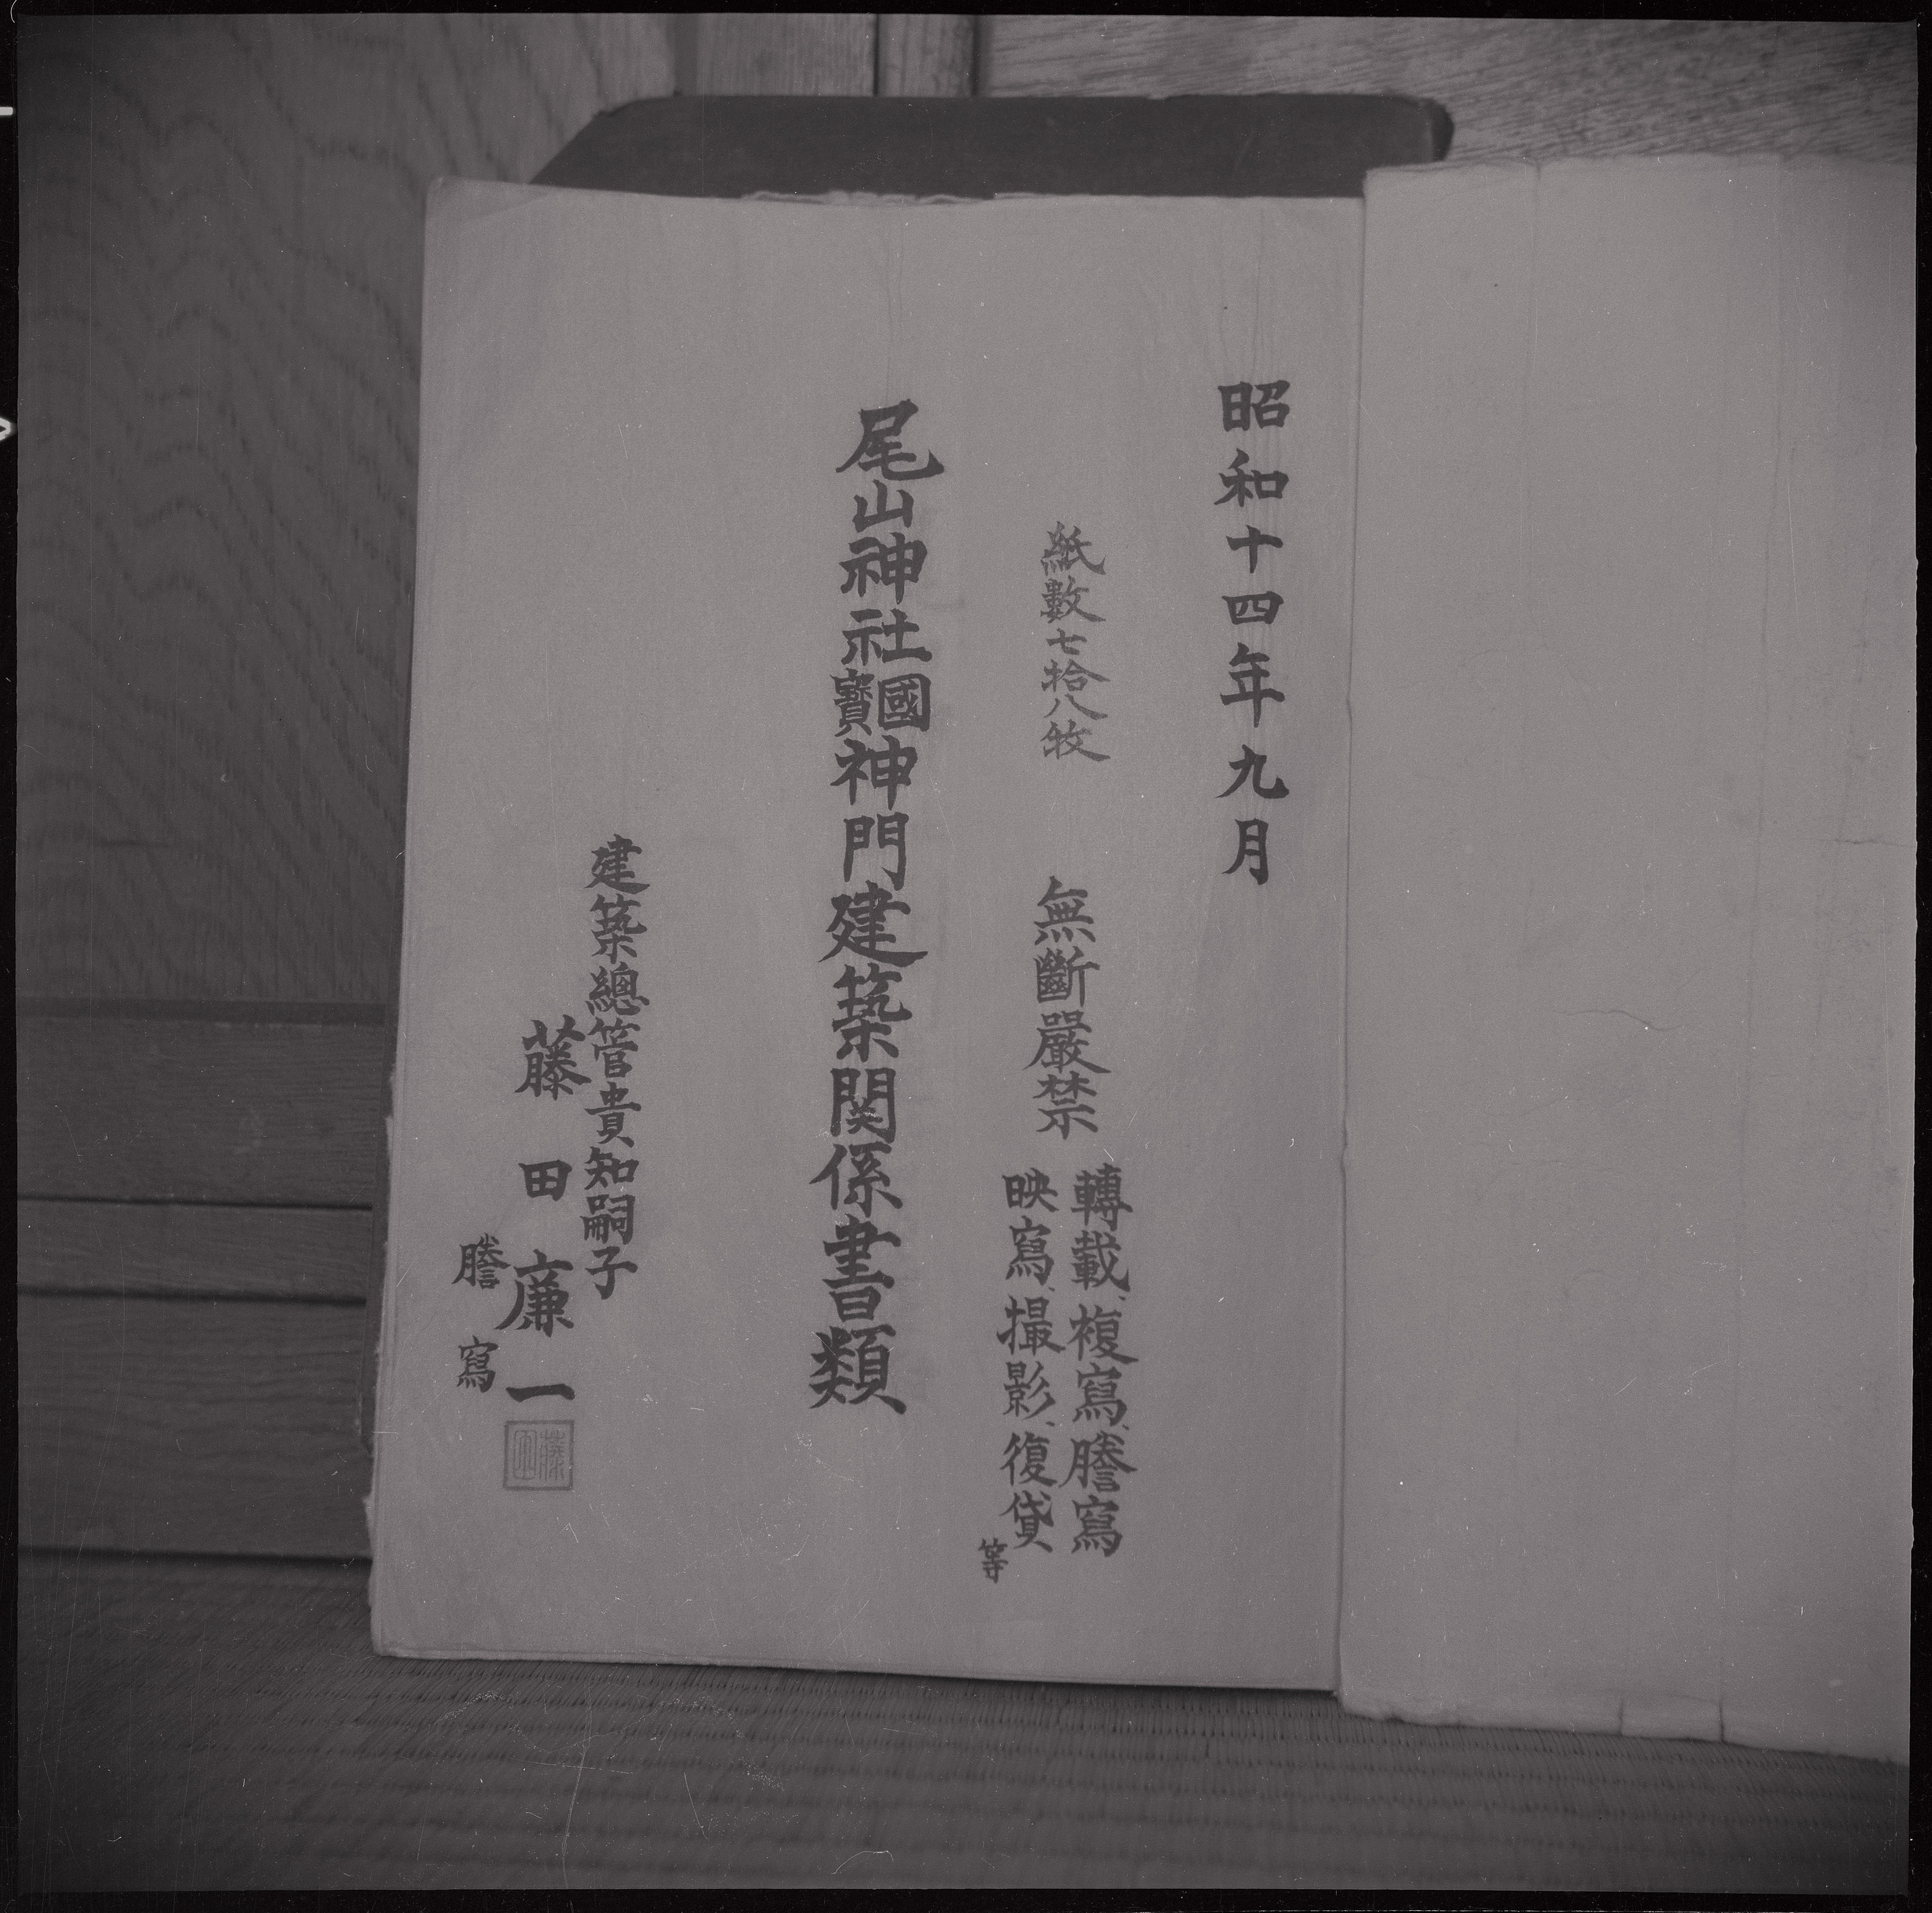 昭和十四年九月
紙數七拾八牧
無斷嚴禁
轉載、複寫、謄寫
映寫、撮影、復貸
等
尾山神社國寶神門建築関係書類
建築總管貴知嗣子
藤田廉一
謄寫
藤田